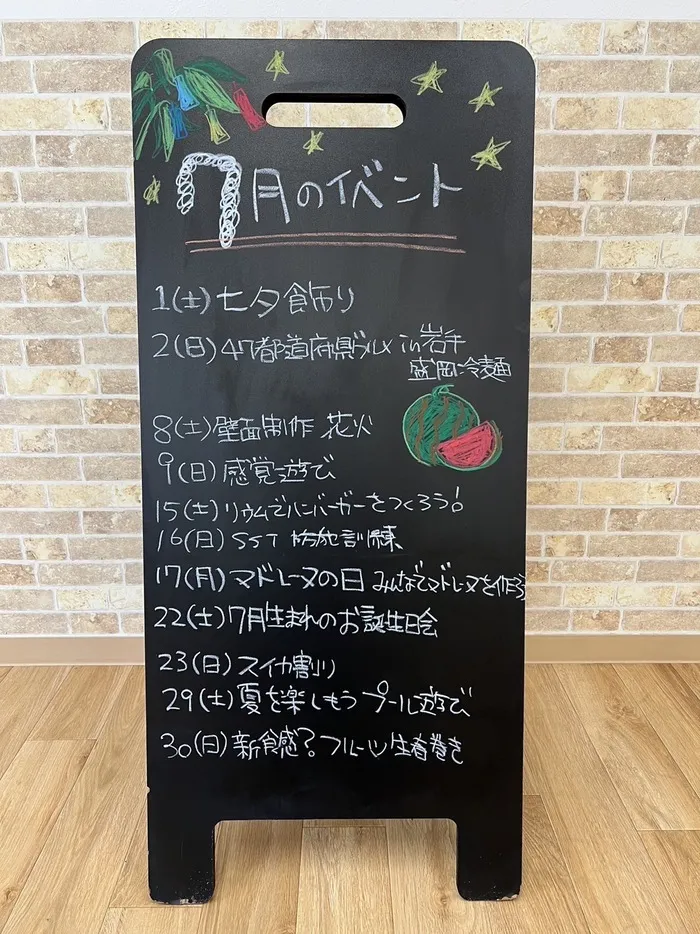 7月のイベント
1(土)七夕飾り
2(日)47都道府県グルメ in岩手
盛岡冷麺
8(土)壁面制作 花火
9(日)感覚遊び
15(土)リウムでハンバーガーをつくろう!
16(日)SST 訓練
17(月)マドレーヌの日 みんなでマドレーヌを作ろう
22(土)7月生まれのお誕生日会
23(日)スイカ割り
29(土)夏を楽しもう プール遊び
30(日)新食感?フルーツ生春巻き